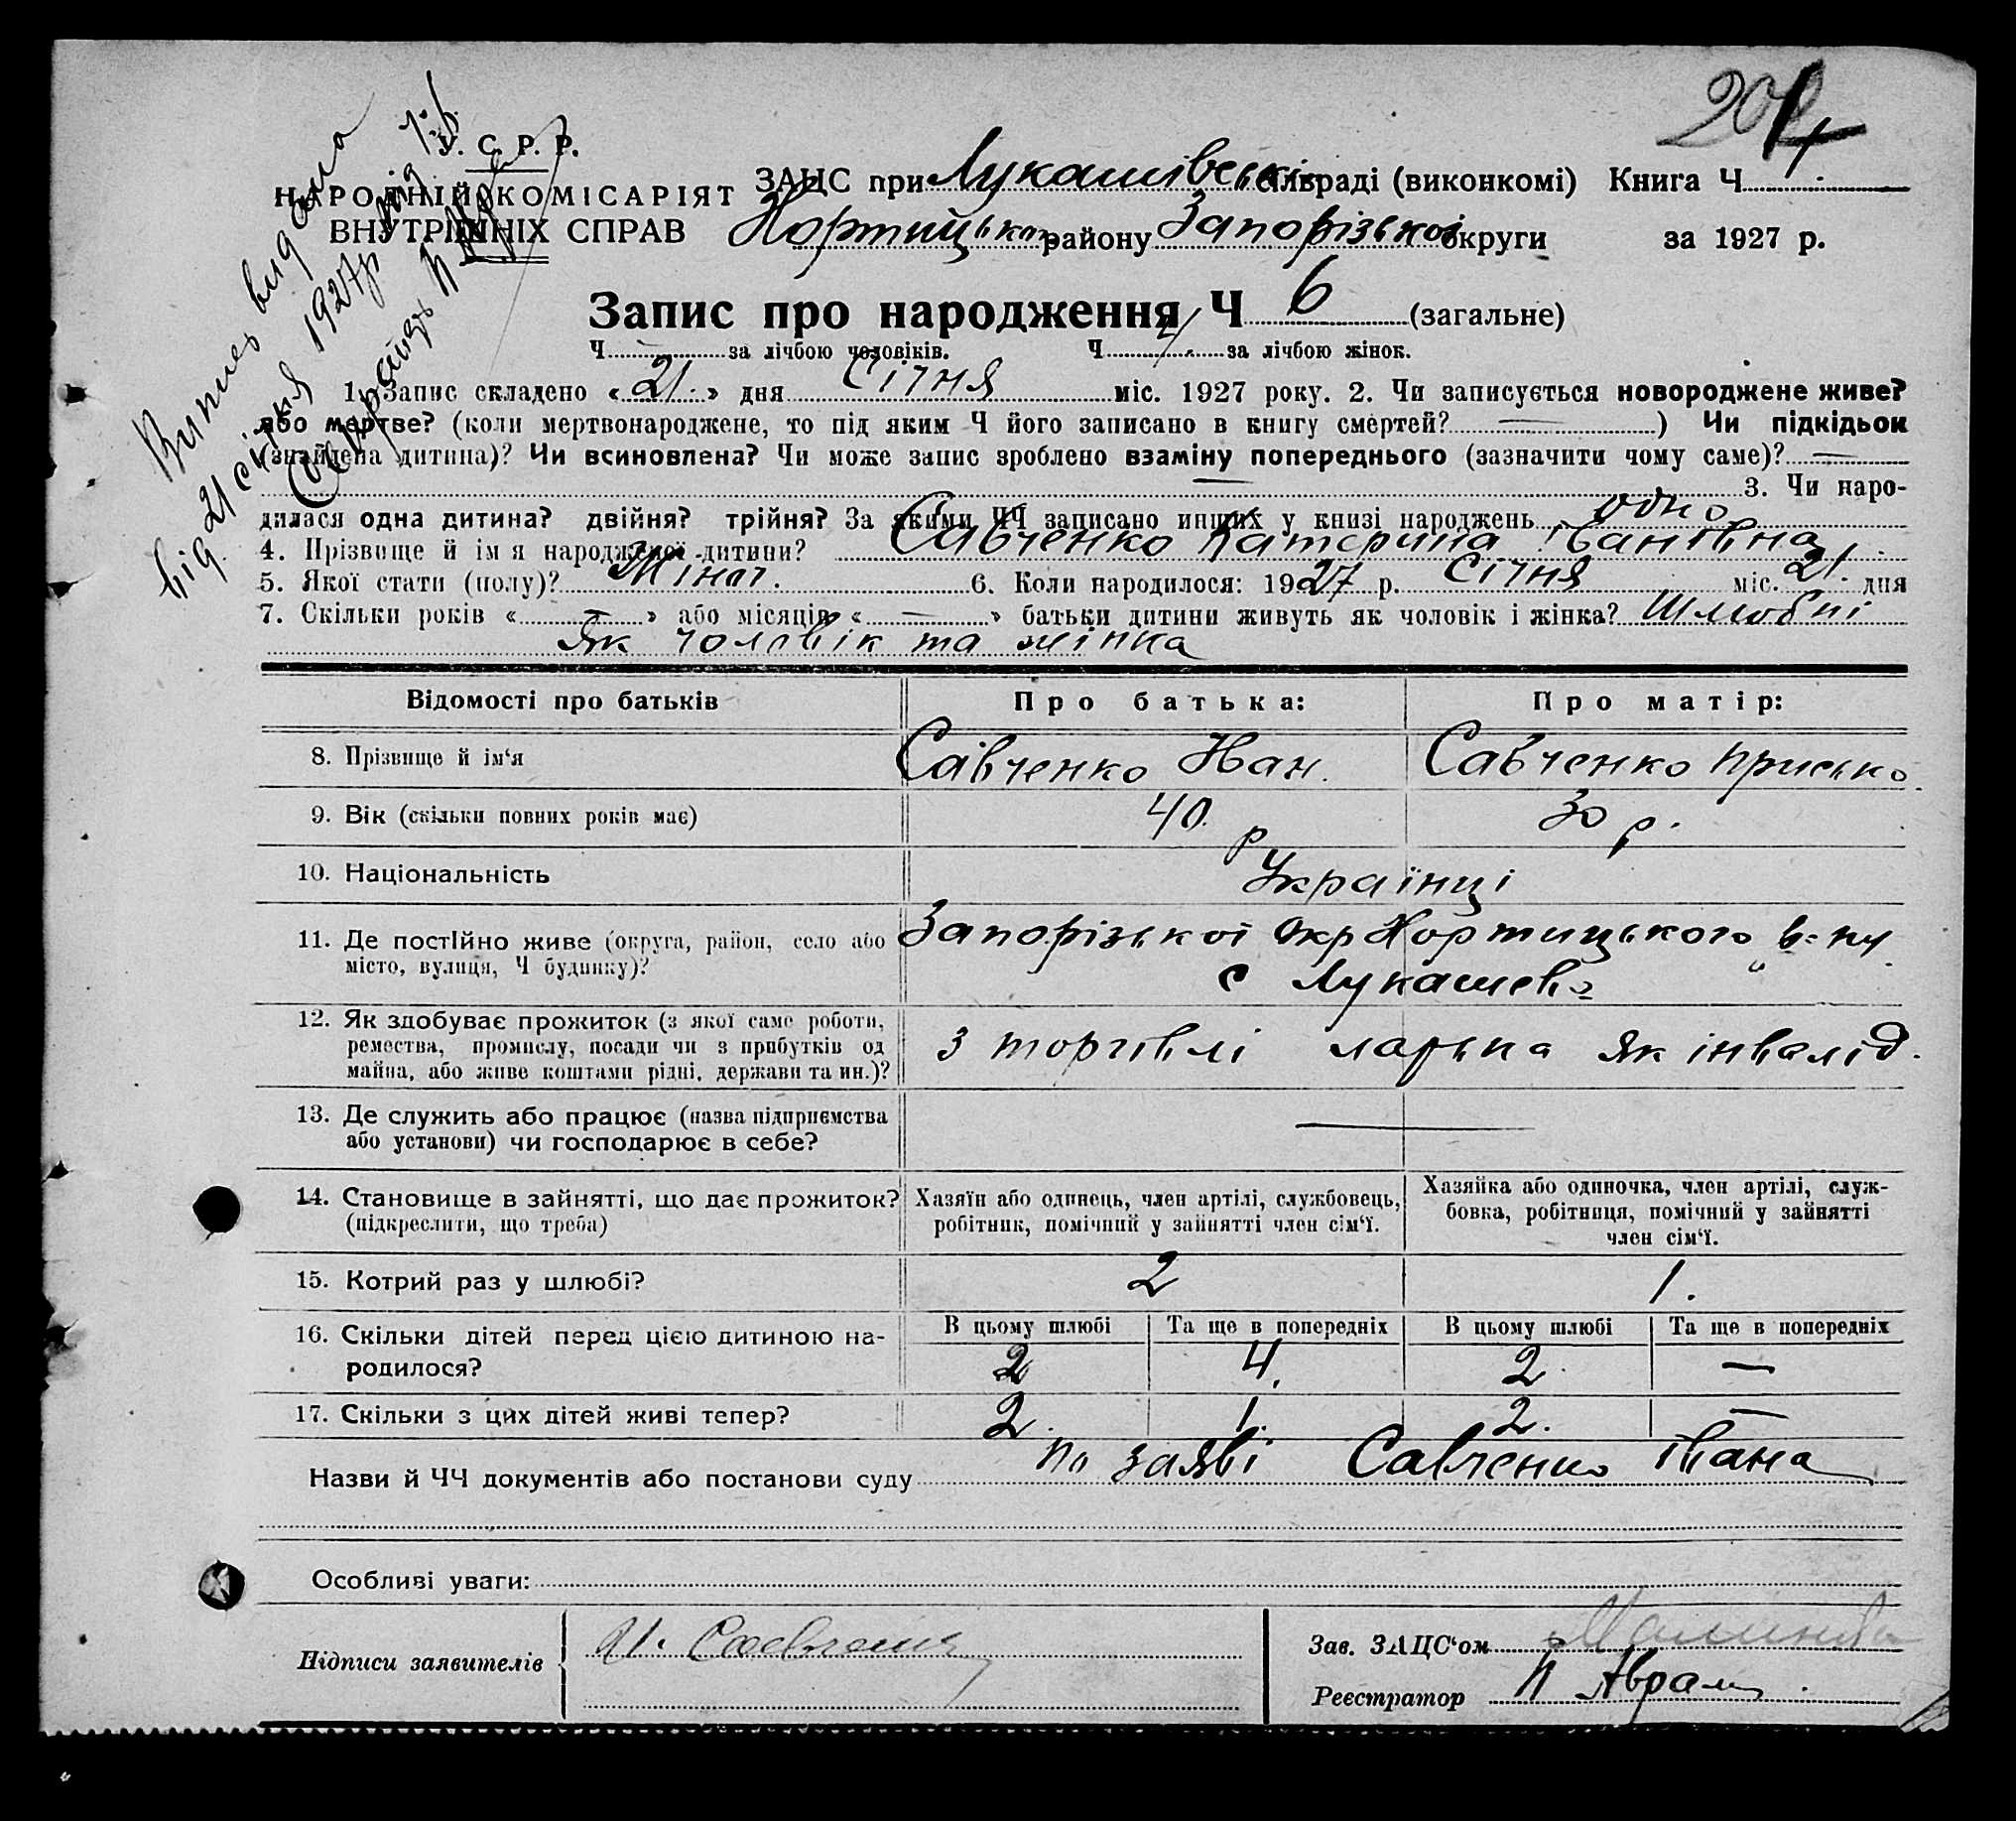 204
У. С. Р. Р.
НАРОДНІЙ КОМІСАРІЯТ
ВНУТРІШНІХ СПРАВ
Випис видано
від 21 січня 1927р під ч. 6
ЗАЦС при Лукашівськ сільраді (виконкомі) Книга Ч 1.
Хортицьког району Запорізької округи за 1927 р.
Запис про народження Ч 6 (загальне)
Ч за лічбою чоловіків. Ч 4. за лічбою жінок.
1. Запис складено « 21. » дня Січня міс. 1927 року. 2. Чи записується новороджене живе?
або мертве? (коли мертвонароджене, то під яким Ч його записано в книгу смертей? — ) Чи підкідьок
(знайдена дитина)? Чи всиновлена? Чи може запис зроблено взаміну попереднього (зазначити чому саме)? —
— 3. Чи наро-
дилася одна дитина? двійня? трійня? За якими ЧЧ записано инших у книзі народжень одно
4. Прізвище й ім'я народженої дитини? Савченко Катерина Іванівна
5. Якої стати (полу)? Жіноч. 6. Коли народилося: 1927 р. Січня міс. 21. дня
7. Скільки років « — » або місяців « — » батьки дитини живуть як чоловік і жінка? Шлюбні
як чоловік та жінка
Відомості про батьків Про батька: Про матір:
8. Прізвище й ім'я Савченко Иван. Савченко Присько
9. Вік (скільки повних років має) 40. р 30 р.
10. Національність Українці
11. Де постійно живе (округа, район, село або Запорізької Окр Хортицького в-ну
місто, вулиця, Ч будинку)? с Лукашево
12. Як здобуває прожиток (з якої саме роботи,
ремества, промислу, посади чи з прибутків од з торгівлі ларька як інвалід.
майна, або живе коштами рідні, держави та ин.)?
13. Де служить або працює (назва підприємства
або установи) чи господарює в себе? —
14. Становище в зайнятті, що дає прожиток? Хазяїн або одинець, член артілі, службовець, Хазяйка або одиночка, член артілі, служ-
(підкреслити, що треба) робітник, помічний у зайнятті член сім'ї. бовка, робітниця, помічний у зайнятті
член сім'ї.
15. Котрий раз у шлюбі? 2 1.
16. Скільки дітей перед цією дитиною на- В цьому шлюбі Та ще в попередніх В цьому шлюбі Та ще в попередніх
родилося? 2 4. 2 —
17. Скільки з цих дітей живі тепер? 2. 1. 2. —
Назви й ЧЧ документів або постанови суду по заяві Савченко Івана
Особливі уваги:
Підписи заявителів И. Савченко
Зав. ЗАЦС'ом
Реєстратор П Аврам